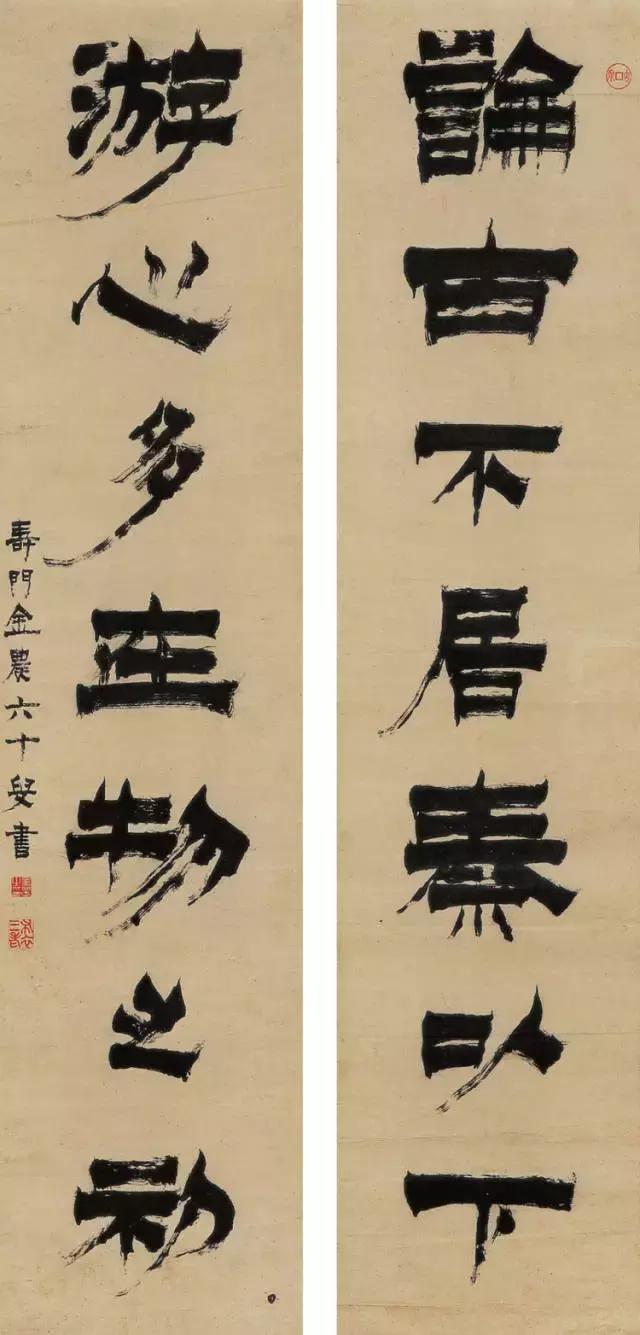 論古不居秦以下
游心多在物之初
壽門金農六十叟書